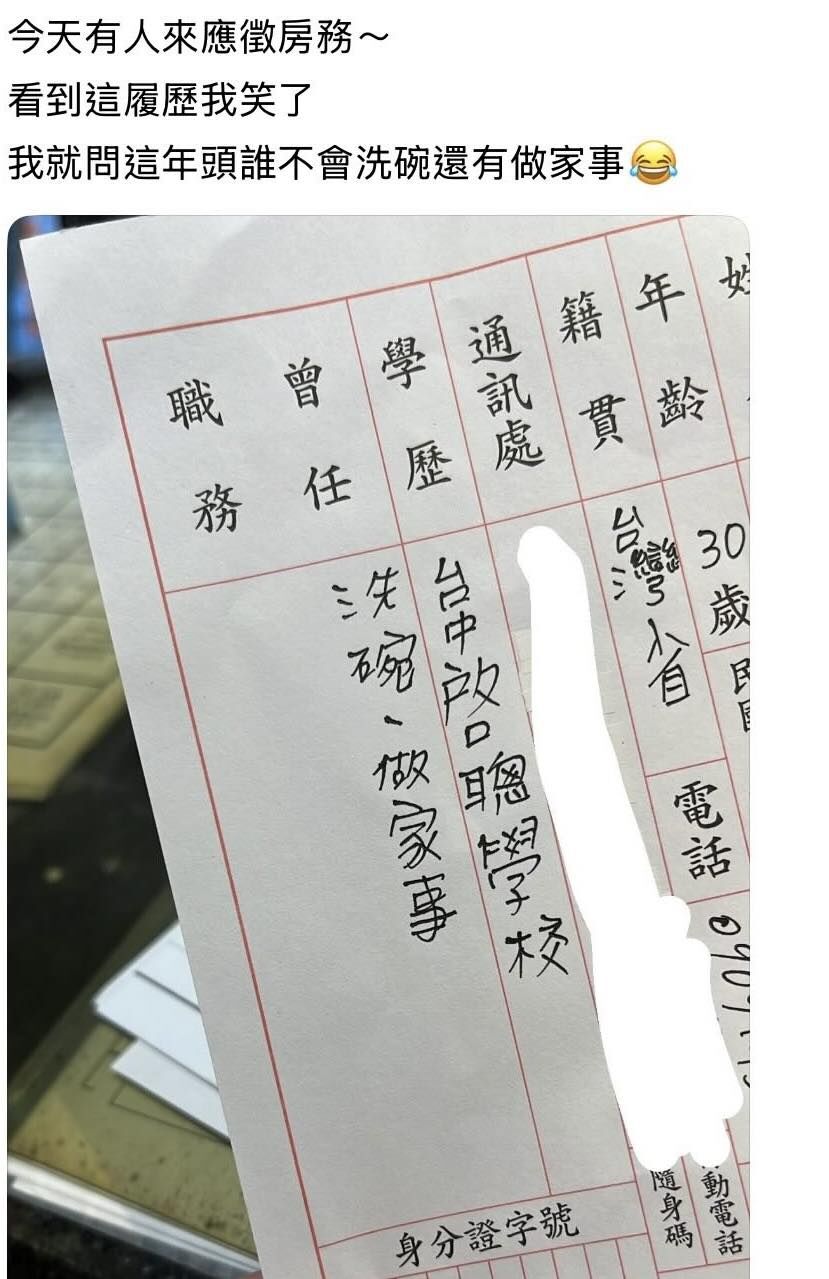 今天有人來應徵房務～
看到這履歷我笑了
我就問這年頭誰不會洗碗還有做家事😂
姓
年齡
30歲
民國
籍貫
台灣省
電話
通訊處
學歷
台中啓聰學校
曾任職務
洗碗、做家事
動電話
隨身碼
身分證字號